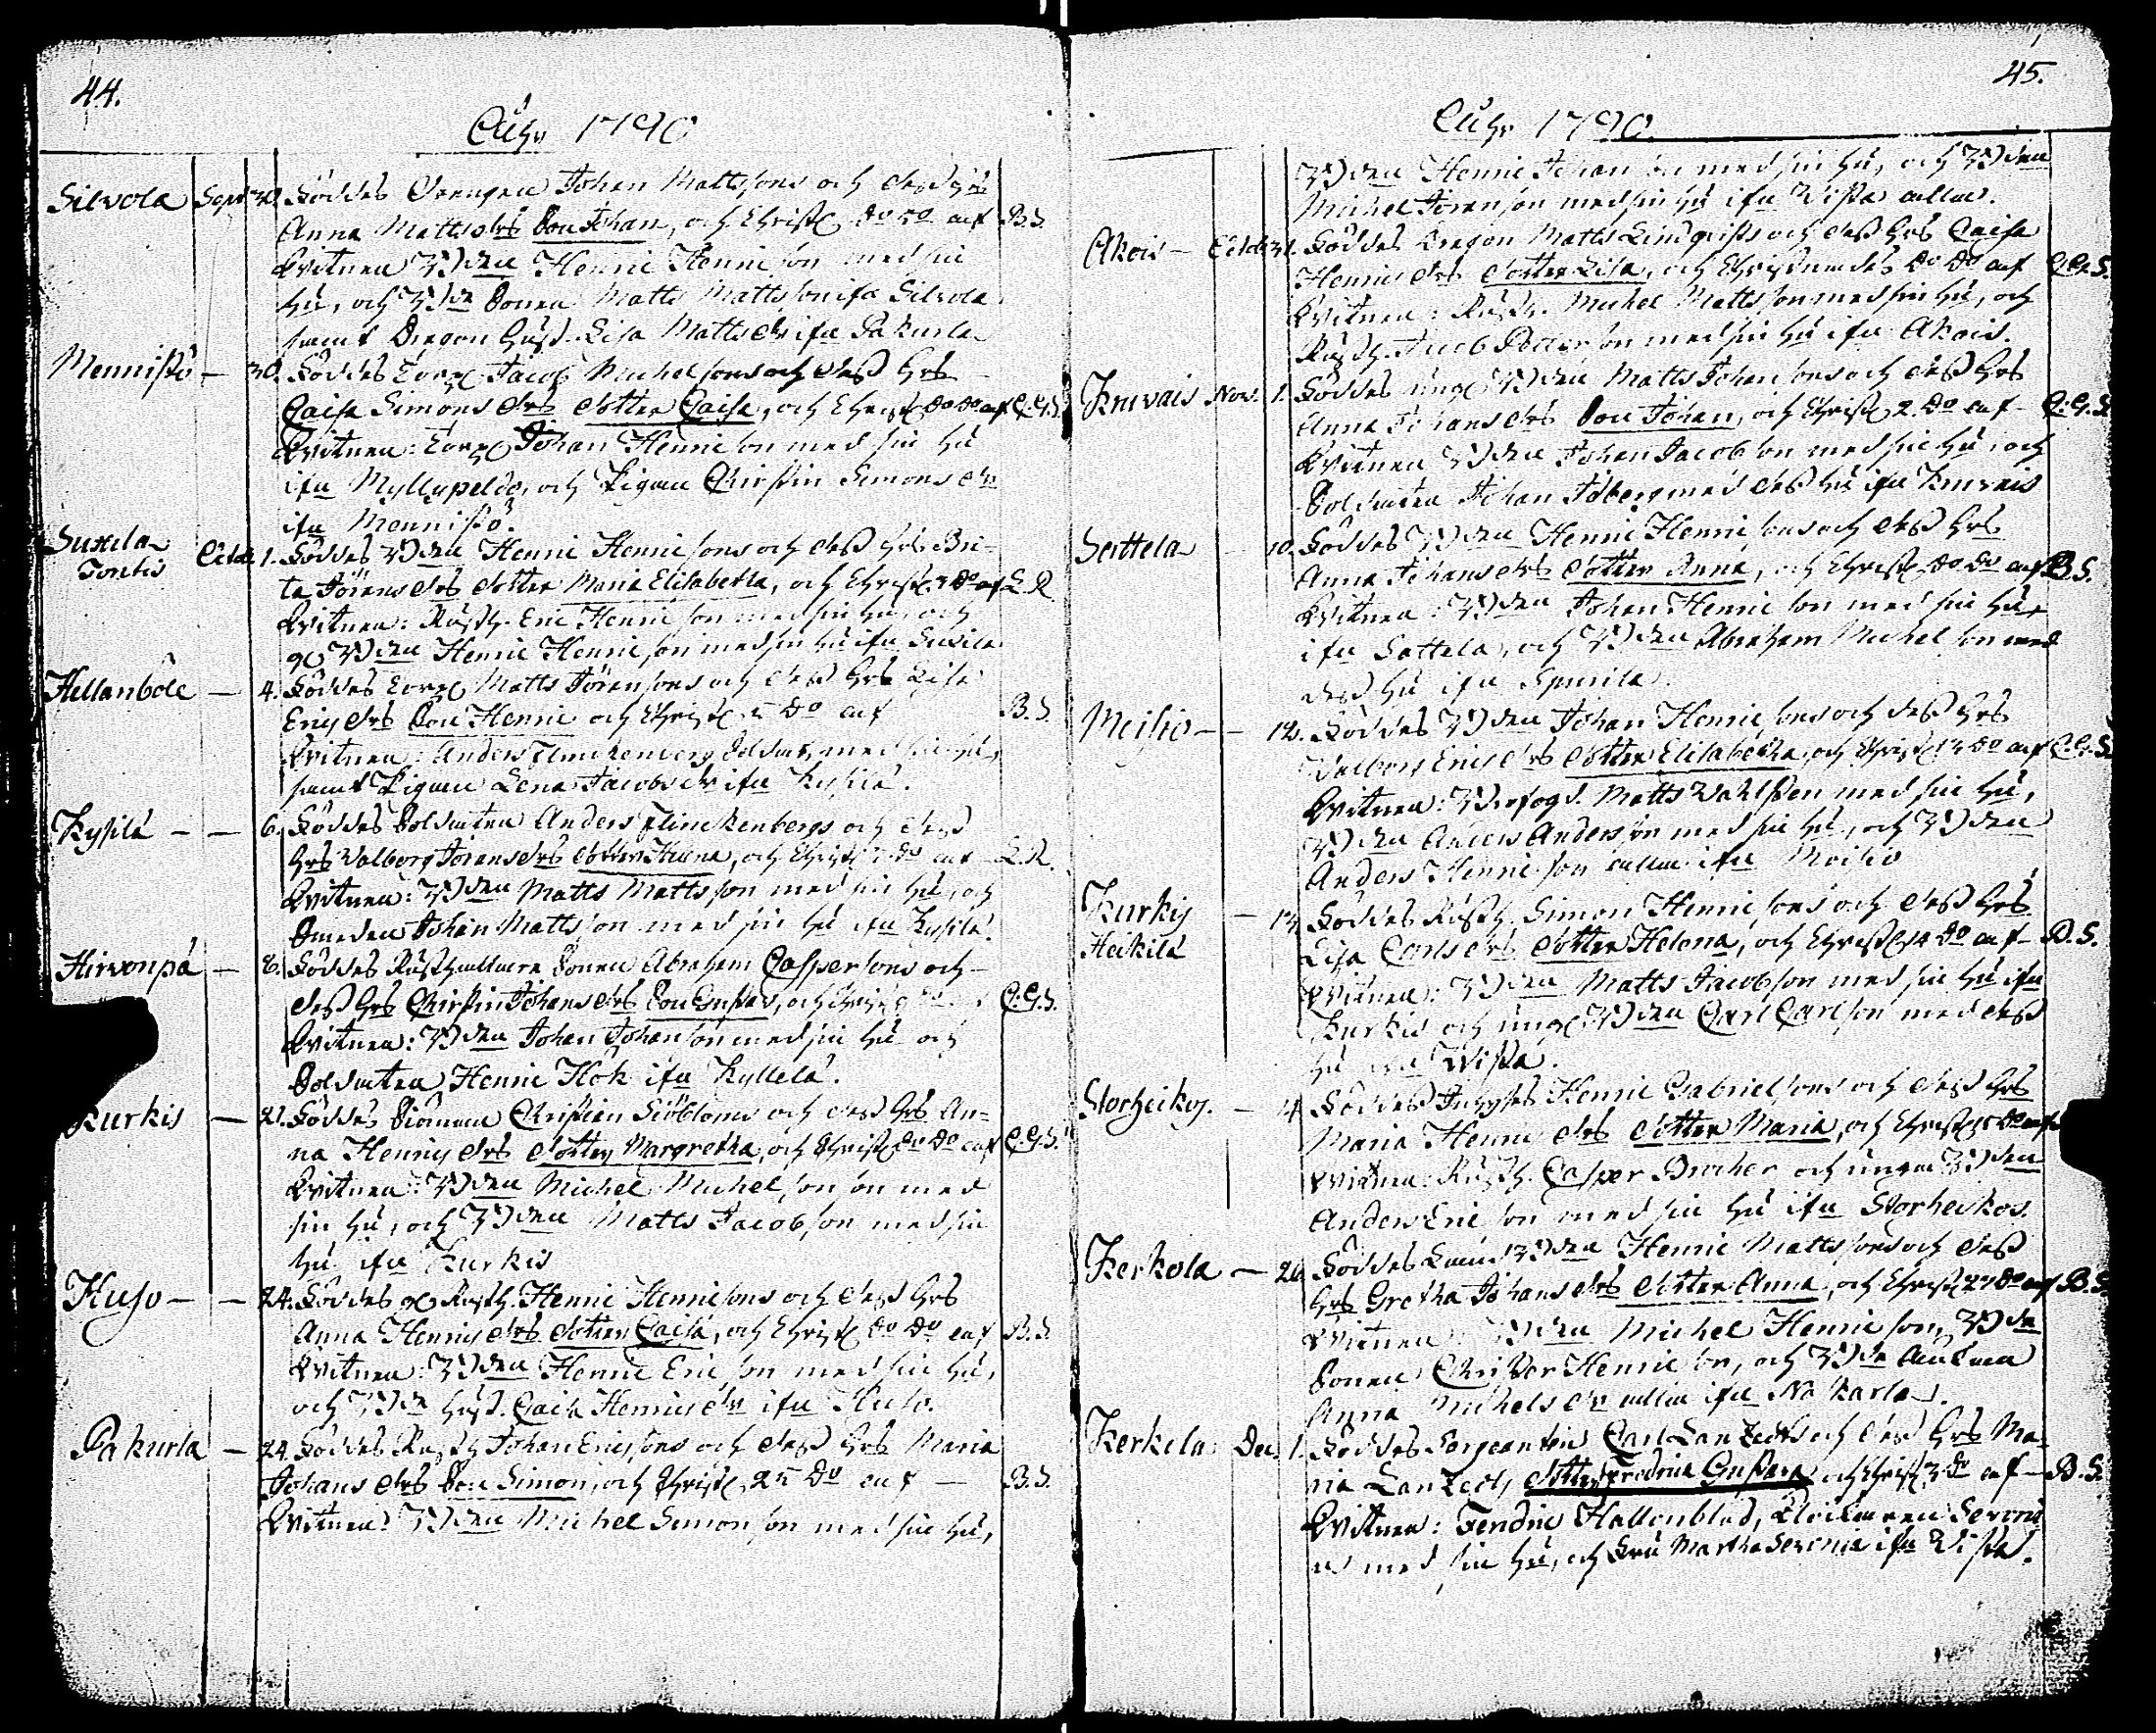 44.
Åhr 1790
Silvola Sept. 30. Föddes Drengen Johan Mattssons och dess hus
Anna Matts drs Son Johan, och Christ. do do af B.S.
Witnen Bonden Henric Henricson med sin
hu, och Bonde Sonen Matts Mattsson ifrån Silvola
samt Dragon hust. Lisa Matts dr ifrån Pakurla
Mennistö — 30. Föddes Torp. Jacob Michelssons och dess hus
Caisa Simons drs dotter Caisa, och Christ. do do af C.G.S.
Witnen: Torp. Johan Henricson med sin hu
ifrån Myllypeldo, och Pigan Christin Simons dr
ifrån Mennistö.
Suxila
Tontis Octob. 1. Föddes Bonden Henric Henricsons och dess hus Bri-
ta Jörans drs dotter Maria Elisabetha, och Christ. 3 do af L.R.
Witnen: Rusth. Eric Henricson med sin hu, och
Bonden Henric Henricson med sin hu ifrån Suxila
Hellanböle — 4. Föddes Torp. Matts Jöranssons och dess hus Lisa
Erics drs Son Henric och Christ. 5 do af B.S.
Witnen: Anders Flinckenberg Soldat, med sin hu,
samt Pigan Lena Jacobs dr ifrån Kyssilä.
Kyssilä — — 6. Föddes Soldaten Anders Flinckenbergs och dess
hus Valborg Jörans drs dotter Helena, och Christ. 7 do af L.R.
Witnen: Bonden Matts Mattsson med sin hu, och
Smeden Johan Mattsson med sin hu ifrån Kyssilä.
Hirvonpä — 8. Föddes Rusthållare Sonen Abraham Caspersons och
dess hus Christin Johans drs Son Gustav, och Christ. 9 do C.G.S.
Witnen: Bonden Johan Johanson med sin hu och
Soldaten Henric Hök ifrån Kyllelä.
Kurkis — 21. Föddes Christian Siöbloms och dess hus An-
na Henrics drs dotter Margretha, och Christ. do do af C.G.S.
Witnen: Bonden Michel Michelson med
sin hu, och Bonden Matts Jacobson med sin
hu ifrån Kurkis
Huso — — 24. Föddes Rusth. Henric Henricsons och dess hus
Anna Henrics drs dotter Caisa, och Christ. do do af B.S.
Witnen: Bonden Henric Ericson med sin hu,
och Bonde hust. Caisa Henrics dr ifrån Huso.
Pakurla — 24. Föddes Rusth. Johan Ericsons och dess hus Maria
Johans drs Son Simon, och Christ. 25 do af — B.S.
Witnen: Bonden Michel Simonson med sin hu,
45.
Åhr 1790.
Bonden Henric Johanson med sin hu, och Bonden
Michel Jöranson med sin hu ifrån Wista alla.
Akois — Octob. 31. Föddes Dragon Matts Lindqvists och dess hus Caisa
Henrics drs dotter Lisa, och Christnades do do af C.G.S.
Witnen: Rusth. Michel Mattsson med sin hu, och
Rusth. Jacob Petterson med sin hu ifrån Akois.
Knivais Nov. 1. Föddes ung Bonden Matts Johansons och dess hus
Anna Johans drs Son Johan, och Christ. 2 do af — C.G.S.
Witnen Bonden Johan Jacobson med sin hu, och
Soldaten Johan Idberg med dess hu ifrån Knivais
Sattela — 10. Föddes Bonden Henric Henricsons och dess hus
Anna Johans drs dotter Anna, och Christ. do do af B.S.
Witnen: Bonden Johan Henricson med sin hu
ifrån Sattela, och Bonden Abraham Michelson med
dess hu ifrån Spurila.
Moisio — — 12. Föddes Bonden Johan Henricsons och dess hus
Valborg Erics drs dotter Elisabetha, och Christ. 13 do af C.G.S.
Witnen: Matts Wahlsten med sin hu,
Bonden Anders Anderson med sin hu, och Bonden
Anders Henricson alla ifrån Moisio
Kurkis
Heikilä — 13. Föddes Rusth. Simon Henricsons och dess hus
Lisa Carls drs dotter Helena, och Christ. 14 do af — B.S.
Witnen: Bonden Matts Jacobson med sin hu ifrån
Kurkis och ung Bonden Carl Carlson med dess
hu ifrån Wista.
Storheikos. — 14 Föddes Inhyses Henric Gabrielsons och dess hus
Maria Henrics drs dotter Maria, och Christ. 15 do af
Witnen: Rusth. Casper Bucher och unga Bonden
Anders Ericson med sin hu ifrån Storheikos.
Kerkola — 26. Föddes Bonden Henric Mattsons och dess
hus Gretha Johans drs dotter Anna, och Christ. 27 do af B.S.
Witnen: Bonden Michel Henricson, Bonde
Sonen Christer Henricson, och Bonde Enkan
Anna Michels dr alla ifrån Nakarla.
Kerkola Dec. 1. Föddes Sergeanten Carl Lanzedts och dess hus Ma-
ria Lanzedts dotter Fredrica Gustava och Christ. 3 do af — B.S.
Witnen: Fendric Hallonblad, Klockaren Seroni
us med sin hu, och Fru Martha Seronia ifrån Wista.